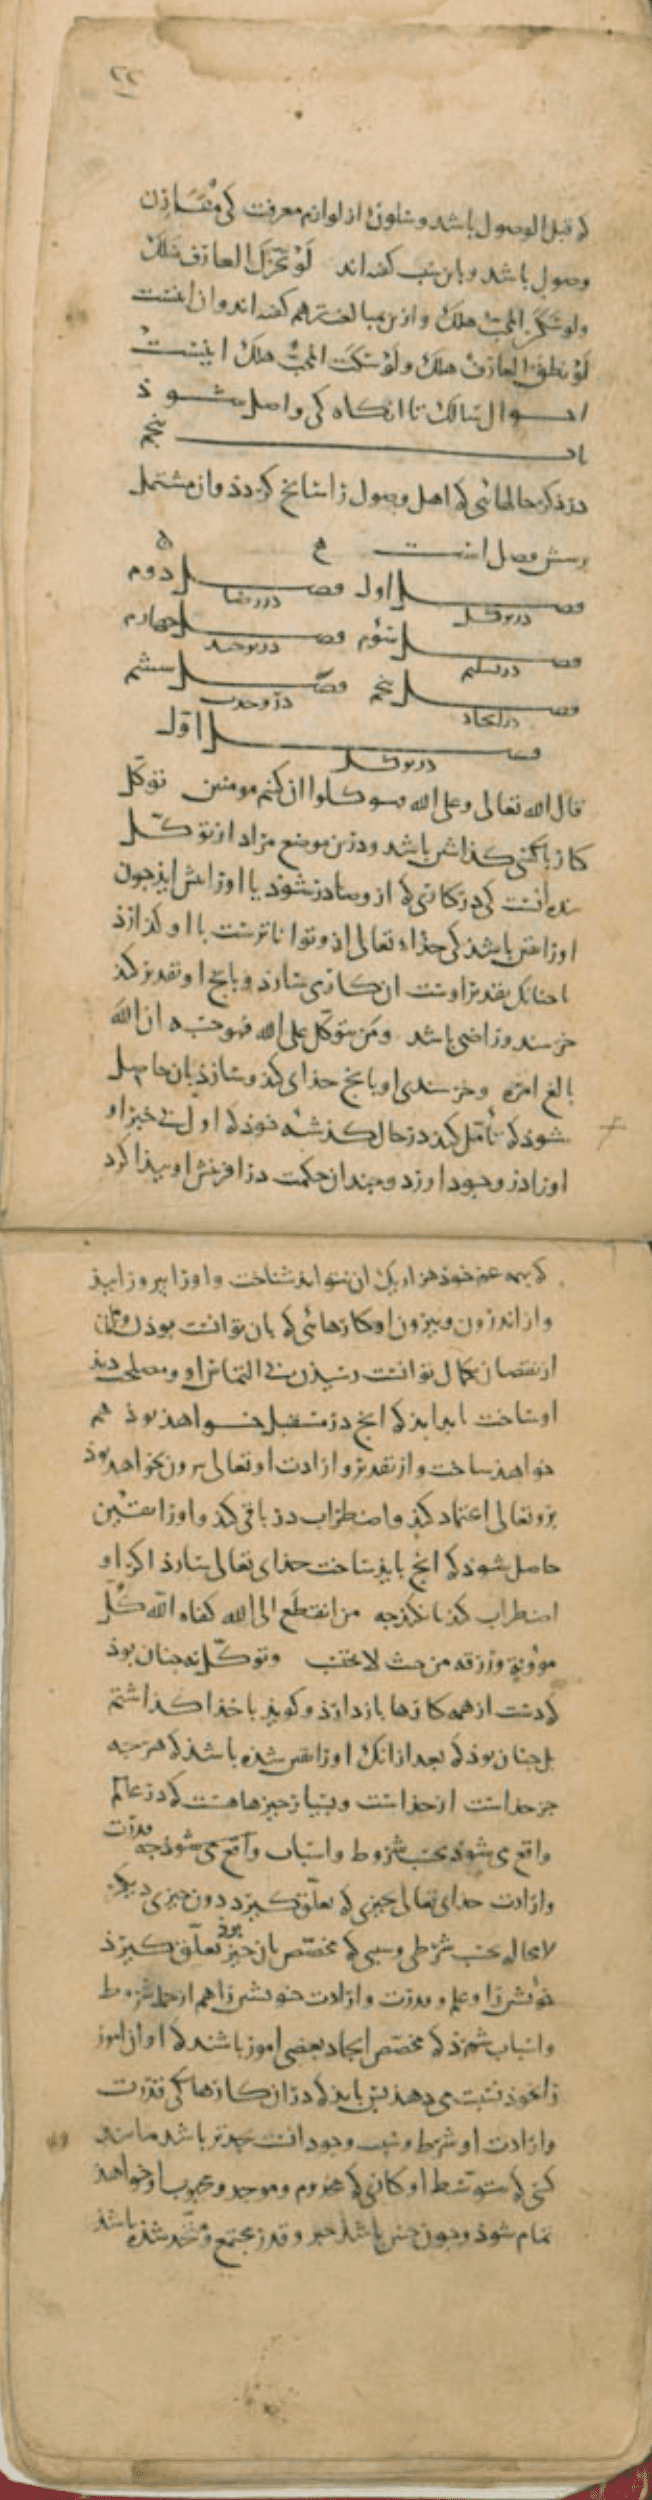 ۲۲
که قبل الوصول باشد و سکون از لوازم معرفت کی مقارن
وصول باشد و باین سبب گفته‌اند لَوْ تَحَرَّكَ العارف هلك
ولو سکن المحب هلك و ازین مبالغت‌تر هم گفته‌اند و ان اینست
لَوْ نطق العارف هلك ولَوْ سکت المحب هلك اینست
احوال سالك تا انگاه کی واصل شود
باب پنجم
در ذکر حالهائی که اهل وصول را سانح گردد و ان مشتمل
بر شش فصل است
فصل اول در توکل فصل دوم در رضا
فصل سوم در تسلیم فصل چهارم در توحید
فصل پنجم در اتحاد فصل ششم در وحدت
فصل اول در توکل
قال الله تعالی وعلی الله فتوکلوا ان کنتم مومنین توکّل
کار با کسی گذاشتن باشد و درین موضع مراد از توکّل
بنده انست کی در کاری که ازو صادر شود یا او را پیش اید چون
او را یقین باشد کی خدای تعالی ازو تواناترست با او گذارد
تا چنانك تقدیر اوست ان کار می سازد و بانچ او تقدیر کند
خرسند و راضی باشد ومَن یتوکّل علی الله فهو حسبه ان الله
بالغ امره و خرسندی او بانچ خدای کند و سازد بان حاصل
شود که تأمّل کند در حال گذشته خود که اول بی خبر او
او را در وجود اورد و چندان حکمت در افرینش او پیدا کرد
که بهمه عمر خود هزار یك ان نتواند شناخت و او را بپرورانید
و از اندرون و بیرون او کارهائی که بان توانست بودن و
از نقصان بکمال توانست رسیدن بی التماس او و مصلحت دید
او ساخت تا بداند که انچ در مستقبل خواهد بود هم
خواهد ساخت و از تقدیر و ارادت او تعالی بیرون نخواهد بود
برو تعالی اعتماد کند و اضطراب در باقی کند و او را یقین
حاصل شود که انچ باید ساخت خدای تعالی سازد اگر او
اضطراب کند یا نکند چه من انقطع الی الله کفاه الله کُلّ
موؤنة ورزقه من حیث لا یحتسب و توکّل نه چنان بود
که دست از همه کارها بازدارد و گوید با خدا گذاشتم
بل چنان بود که بعد از انك او را یقین شده باشد که هرچه
جز خداست از خداست و بسیار چیزها هست که در عالم
واقع می شود بحسب شروط و اسباب واقع می شود چه قدرت
و ارادت خدای تعالی بچیزی که تعلّق گیرد دون چیزی دیگر
لا محاله بحسب شرطی و سببی که مخصّص بان چیز بود تعلّق گیرد
خویشن را و علم و قدرت و ارادت خویشن را هم از جمله شروط
و اسباب شمرد که مخصّص ایجاد بعضی امور باشند که او ان امور
را بخود نسبت می دهد پس باید که در ان کارها کی قدرت
و ارادت او شرط و سبب وجود انست مجدتر باشد مانند
کسی که بتوسّط او کاری که مخدوم و موجد و محبوب او خواهد
تمام شود و چون چنین باشد جبر و قدر مجتمع و متحد شده باشد